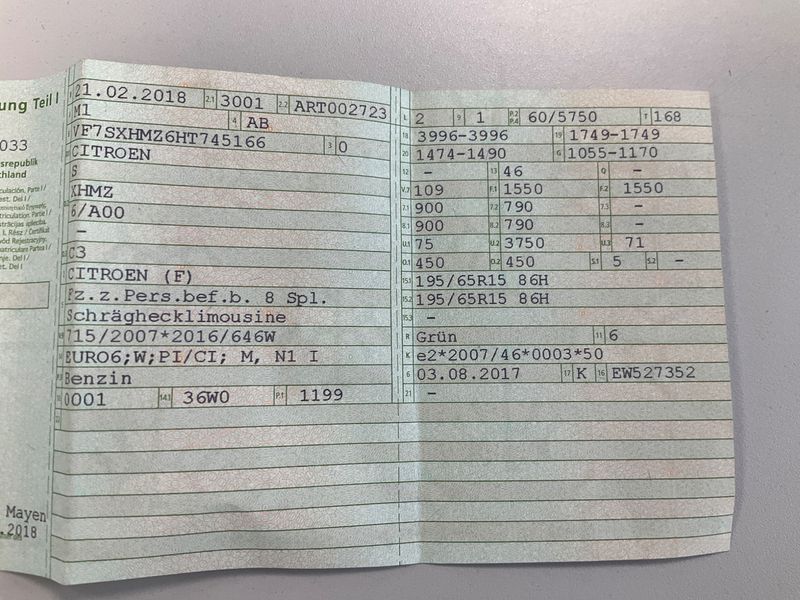 ung Teil I
033
srepublik
chland
Mayen
.2018
21.02.2018 2.1 3001 2.2 ART002723
M1 4 AB
VF7SXHMZ6HT745166 3 0
CITROEN
S
XHMZ
6/A00
–
C3
CITROEN (F)
Fz.z.Pers.bef.b. 8 Spl.
Schräghecklimousine
715/2007*2016/646W
EURO6;W;PI/CI; M, N1 I
Benzin
0001 14.1 36W0 P.1 1199
L 2 9 1 P.2 P.4 60/5750 T 168
18 3996–3996 19 1749–1749
20 1474–1490 G 1055–1170
12 – 13 46 Q –
V.7 109 F.1 1550 F.2 1550
7.1 900 7.2 790 7.3 –
8.1 900 8.2 790 8.3 –
U.1 75 U.2 3750 U.3 71
O.1 450 O.2 450 S.1 5 S.2 –
15.1 195/65R15 86H
15.2 195/65R15 86H
15.3 –
R Grün 11 6
K e2*2007/46*0003*50
6 03.08.2017 17 K 16 EW527352
21 –